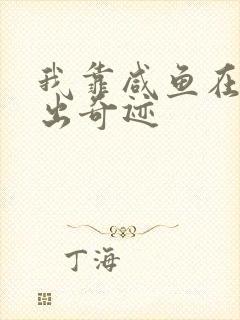 我靠咸鱼在
出奇迹
丁海